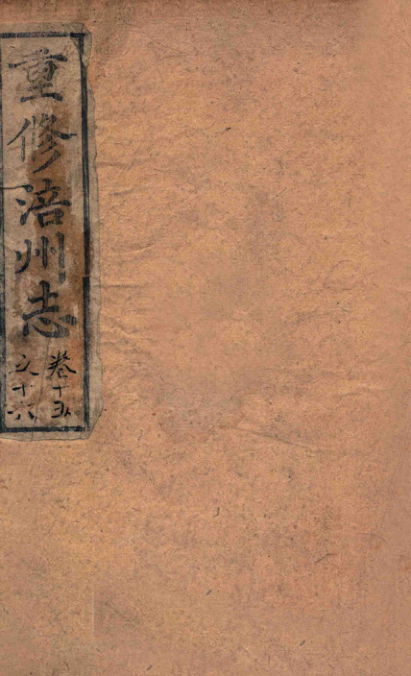 重修涪州志
卷十五
之十六